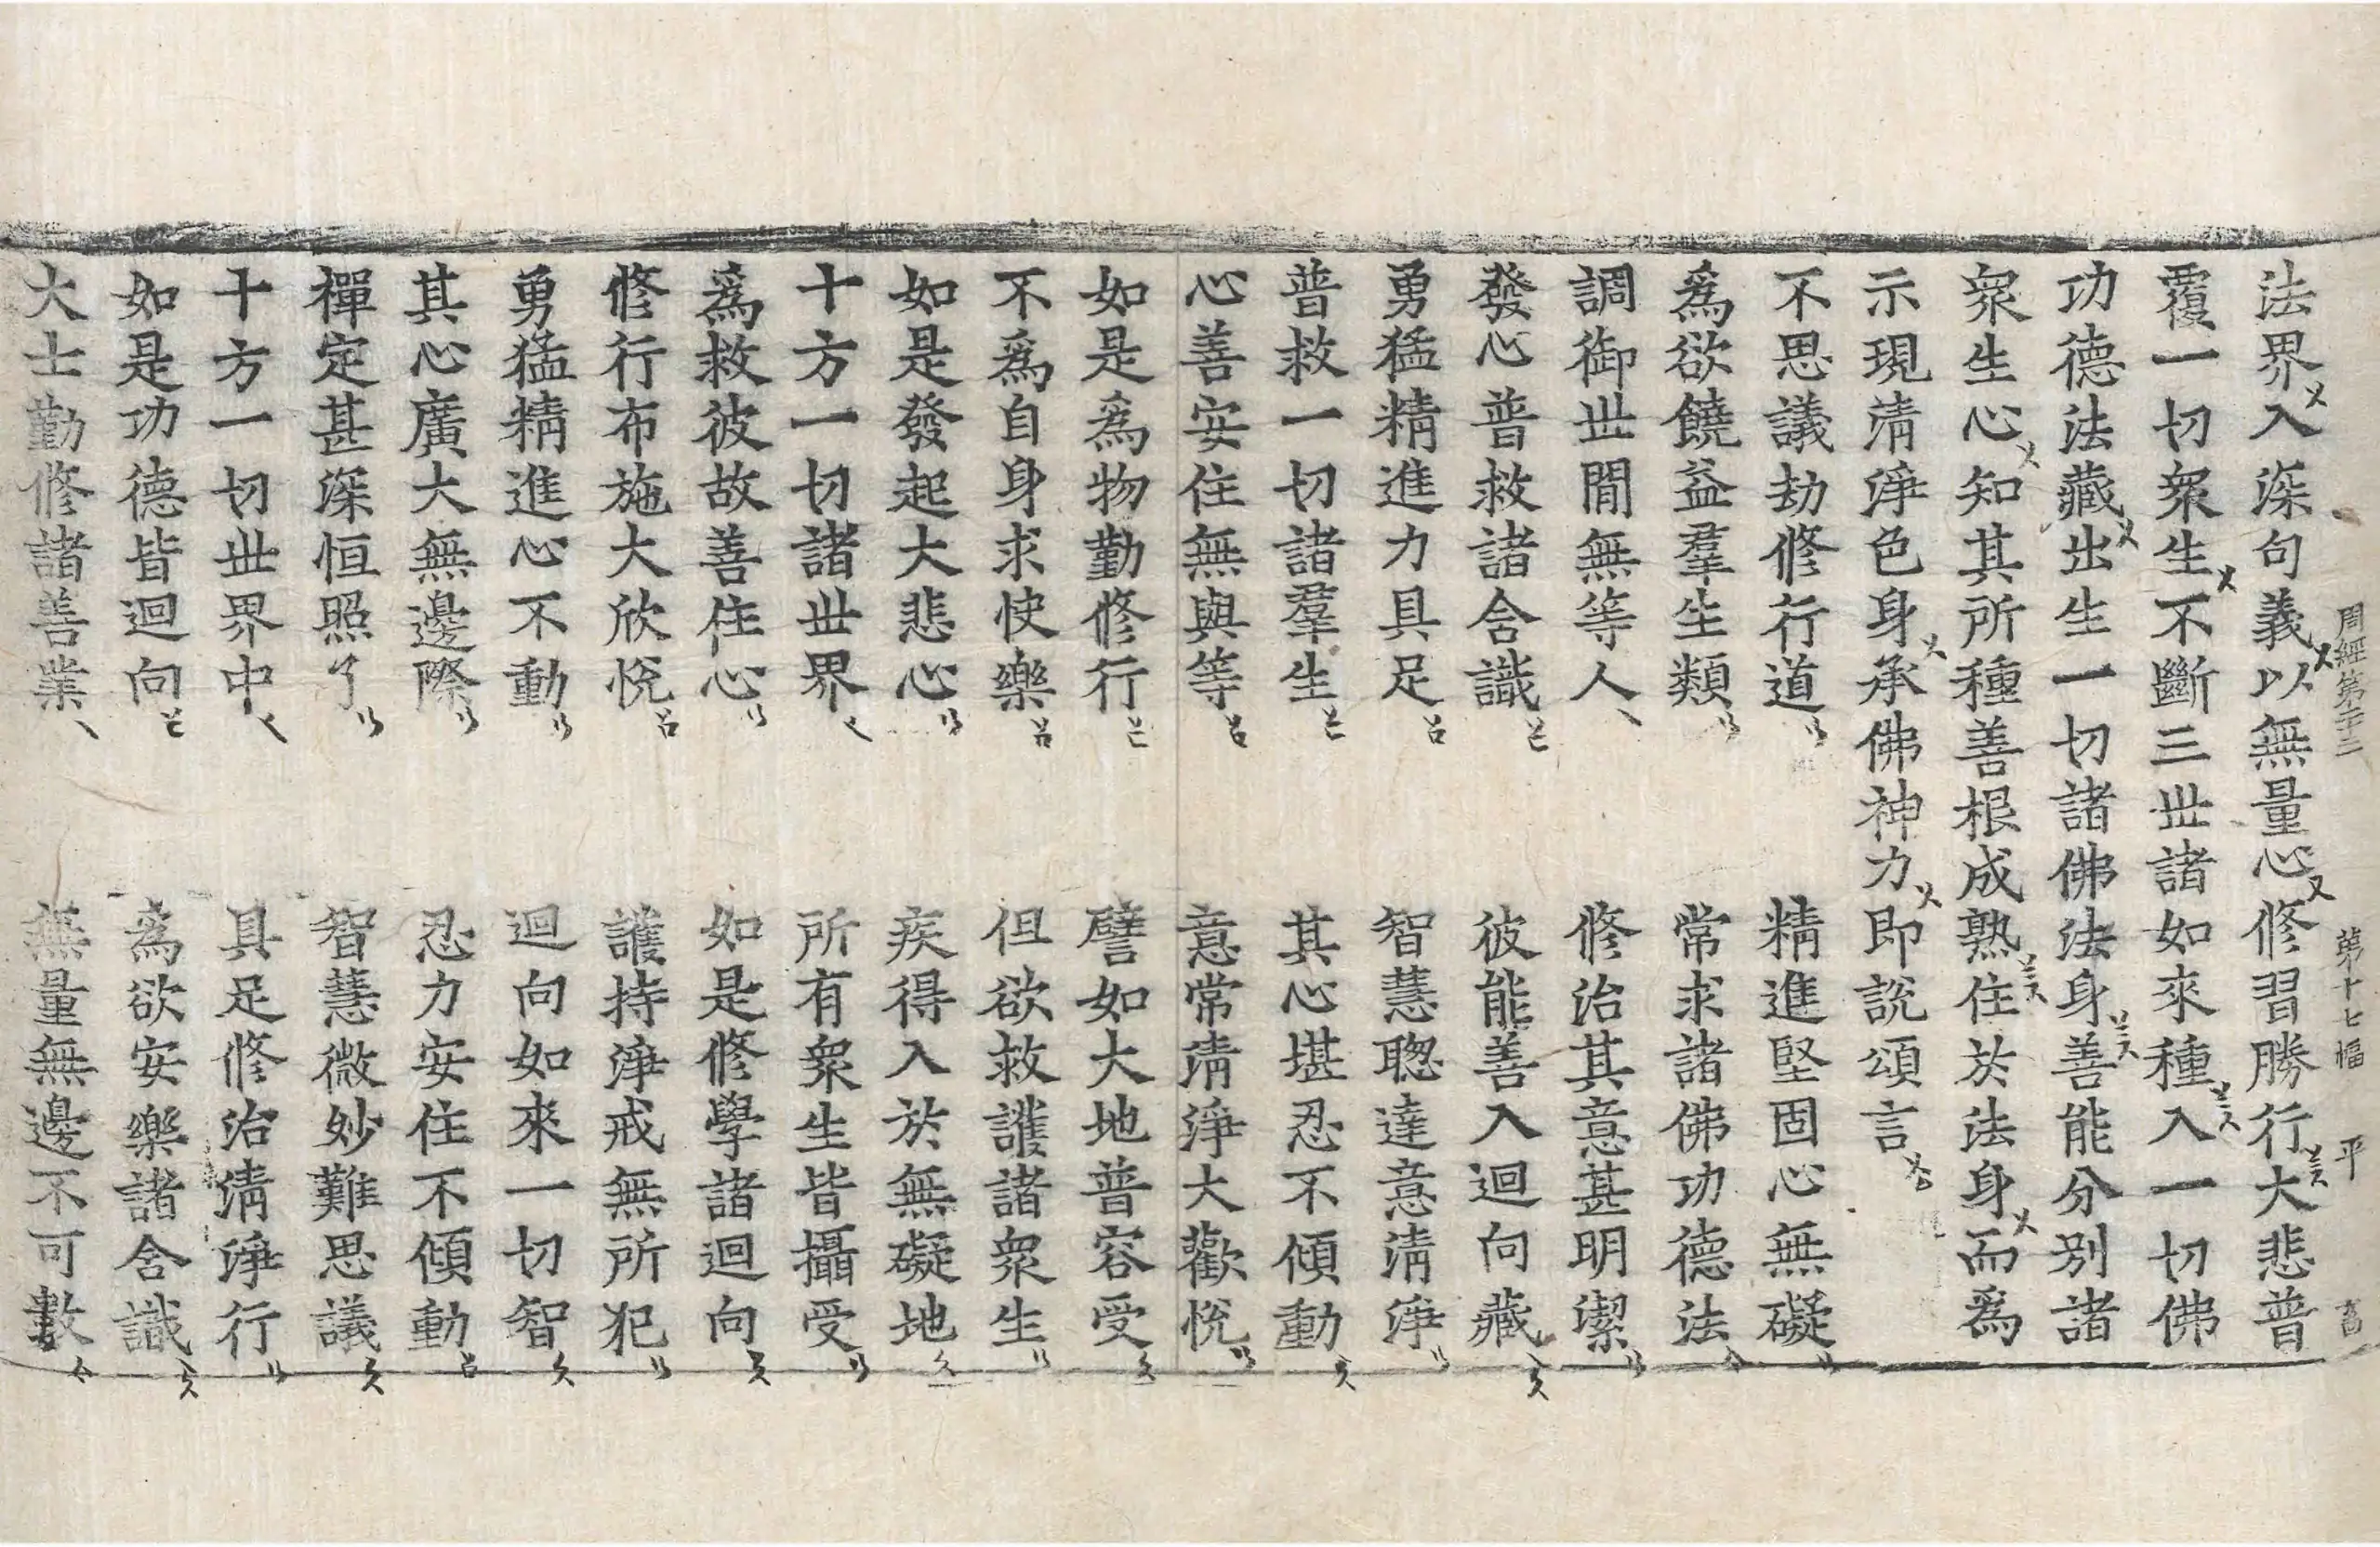 周經第二十二 第十七幅 平
法界入深句義以無量心修習勝行大悲普
覆一切衆生不斷三世諸如來種入一切佛
功德法藏出生一切諸佛法身善能分別諸
衆生心知其所種善根成熟住於法身而爲
示現清淨色身承佛神力即說頌言
不思議劫修行道 精進堅固心無礙
爲欲饒益羣生類 常求諸佛功德法
調御世間無等人 修治其意甚明潔
發心普救諸含識 彼能善入迴向藏
勇猛精進力具足 智慧聰達意清淨
普救一切諸羣生 其心堪忍不傾動
心善安住無與等 意常清淨大歡悅
如是爲物勤修行 譬如大地普容受
不爲自身求快樂 但欲救護諸衆生
如是發起大悲心 疾得入於無礙地
十方一切諸世界 所有衆生皆攝受
爲救彼故善住心 如是修學諸迴向
修行布施大欣悅 護持淨戒無所犯
勇猛精進心不動 迴向如來一切智
其心廣大無邊際 忍力安住不傾動
禪定甚深恒照了 智慧微妙難思議
十方一切世界中 具足修治清淨行
如是功德皆迴向 爲欲安樂諸含識
大士勤修諸善業 無量無邊不可數